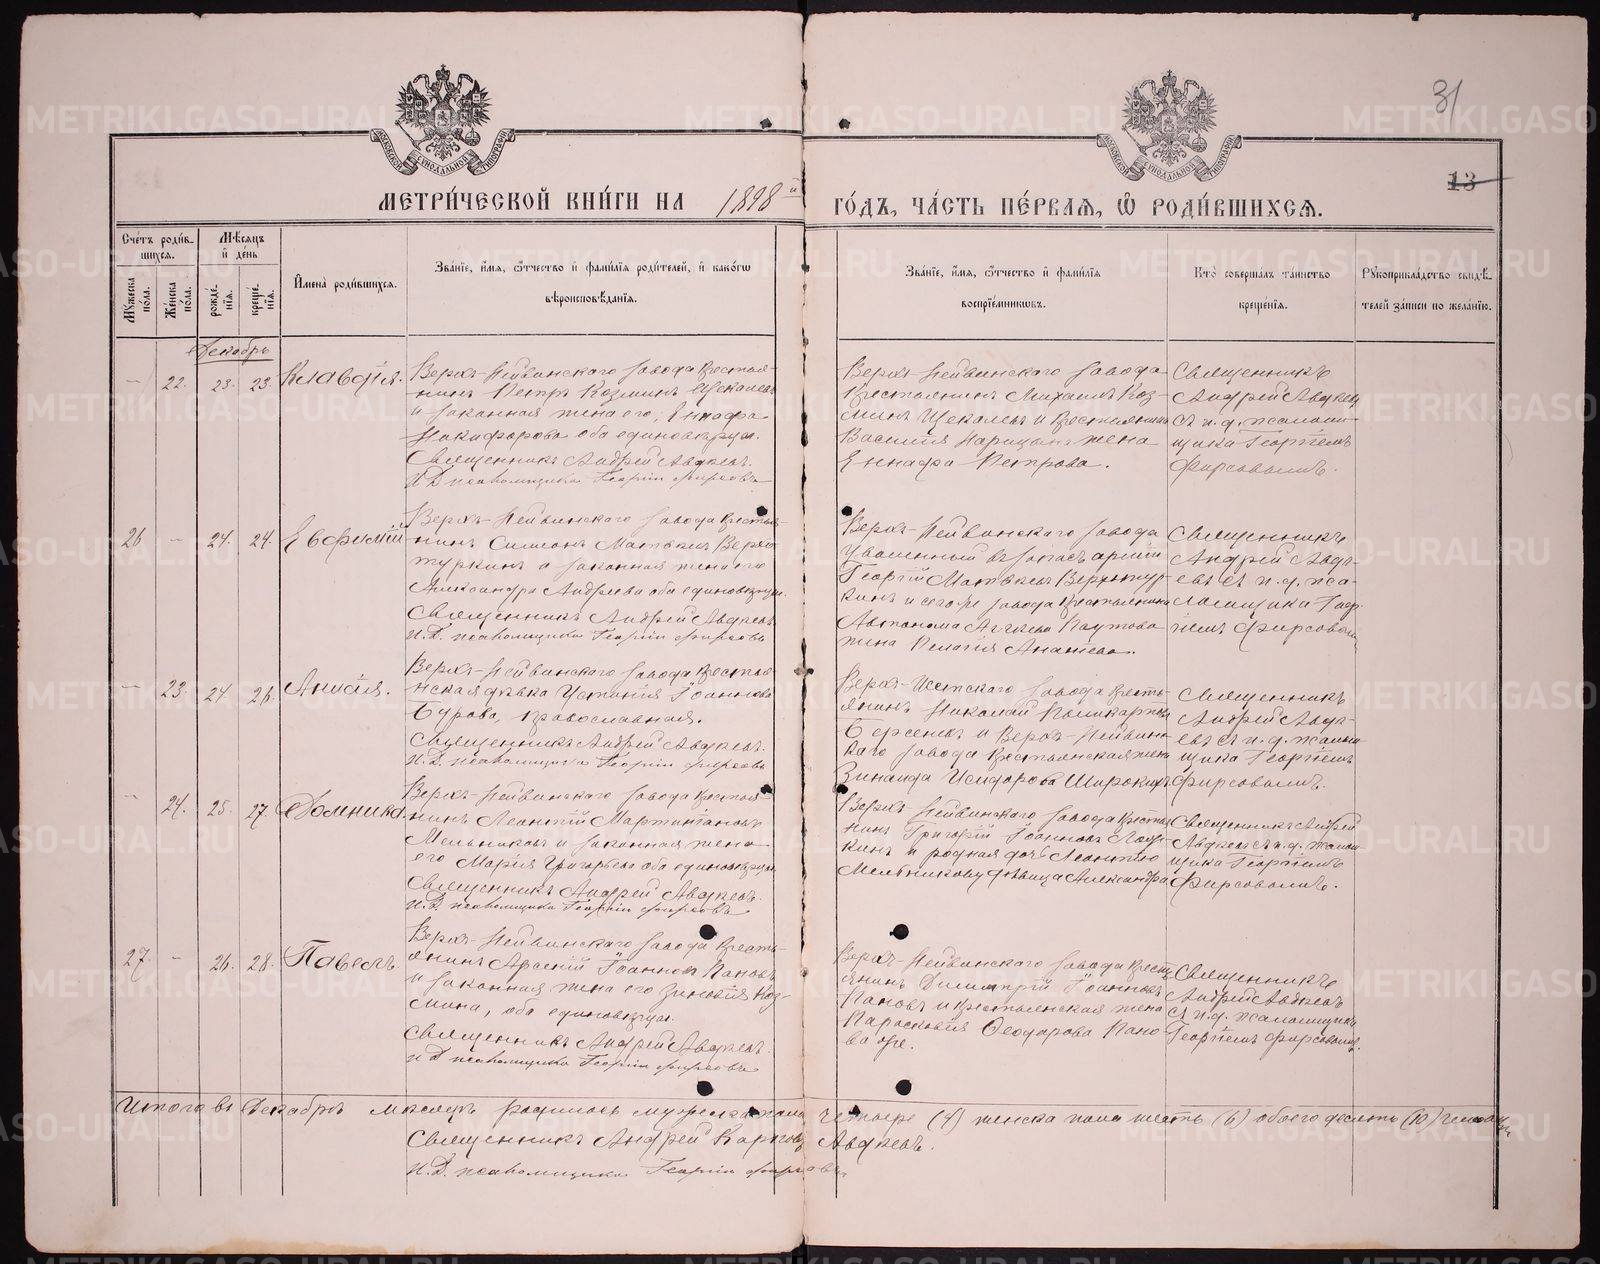 31
13
МОСКОВСКОЙ СѴНОДАЛЬНОЙ ТИПОГРАФІИ
МОСКОВСКОЙ СѴНОДАЛЬНОЙ ТИПОГРАФІИ
МЕТРИ́ЧЕСКОЙ КНИ́ГИ НА 1898й ГО́ДЪ, ЧА́СТЬ ПЕ́РВАЯ, Ѽ РОДИ́ВШИХСЯ.
Сче́тъ роди́в-
шихся.
Му́жеска
по́ла.
Же́нска
по́ла.
Мѣ́сяцъ
и де́нь
рожде́-
нія.
креще́-
нія.
Имена̀ роди́вшихся.
Зва́нїе, и́мя, ѻ́тчество и фами́лїя роди́телей, и како́гѡ
вѣроисповѣ́данїя.
Зва́нїе, и́мя, ѻ́тчество и фами́лїя
воспрїе́мниковъ.
Кто̀ соверша́лъ та́инство
креще́нїя.
Рꙋкоприкла́дство свидѣ́-
телей за́писи по жела́нїю.
Декабрь
– 22. 23. 23. Клавдія.
Верхъ-Нейвинскаго завода крестья-
нинъ Петръ Козминъ Щекалевъ
и законная жена его, Еннафа
Никифорова оба единовѣрцы.
Священникъ Андрей Авдѣевъ.
И.Д. псаломщика Георгій Фирсовъ
Верхъ-Нейвинскаго завода
крестьянинъ Михаилъ Коз-
минъ Щекалевъ и крестьянина
Василія жена
Еннафа Петрова.
Священникъ
Андрей Авдѣевъ
съ и. д. псалом-
щика Георгіемъ
Фирсовымъ.
26 – 24. 24. Евфимій
Верхъ-Нейвинскаго завода крестья-
нинъ Симеонъ Матвѣевъ Верхо-
туркинъ и законная жена его
Александра Андреева оба единовѣрцы.
Священникъ Андрей Авдѣевъ
И.Д. псаломщика Георгій Фирсовъ
Верхъ-Нейвинскаго завода
уволенный въ запасъ арміи
Георгій Матвѣевъ Верхотур-
кинъ и сего же завода крестьянина
Автонома Паутова
жена Пелагія Ананьева.
Священникъ
Андрей Авдѣ-
евъ съ и. д. пса-
ломщика Геор-
гіемъ Фирсовымъ
– 23. 24. 26. Анисія.
Верхъ-Нейвинскаго завода крестья-
нская дѣвка Устинія Іоаннова
Бурова, православная.
Священникъ Андрей Авдѣевъ.
И.Д. псаломщика Георгій Фирсовъ
Верхъ-Исетскаго завода кресть-
янинъ Николай Поликарповъ
Берсеневъ и Верхъ-Нейвин-
скаго завода крестьянская жена
Зинаида Исидорова
Священникъ
Андрей Авдѣ-
евъ съ и. д. псалом-
щика Георгіемъ
Фирсовымъ.
– 24. 25. 27. Домника.
Верхъ-Нейвинскаго завода крестья-
нинъ Леонтій Мартиніановъ
Мельниковъ и законная жена
его Марія Григорьева оба единовѣрцы
Священникъ Андрей Авдѣевъ.
И.Д. псаломщика Георгій Фирсовъ
Верхъ-Нейвинскаго завода крестья-
нинъ Григорій Іоанновъ
и родная дочь Леонтію
Мельникову дѣвица Александра
Священникъ Андрей
Авдѣевъ съ и. д. псалом-
щика Георгіемъ
Фирсовымъ.
27. – 26. 28. Павелъ
Верхъ-Нейвинскаго завода кресть-
янинъ Арсеній Іоанновъ Пановъ
и законная жена его Зиновія Коз-
мина, оба единовѣрцы.
Священникъ Андрей Авдѣевъ.
И.Д. псаломщика Георгій Фирсовъ
Верхъ-Нейвинскаго завода кресть-
янинъ Димитрій Іоанновъ
Пановъ и крестьянская жена
Парасковія Ѳеодорова Пано-
ва же.
Священникъ
Андрей Авдѣевъ
съ и. д. псаломщика
Георгіемъ Фирсовымъ.
Итого въ Декабрѣ мѣсяцѣ родилось мужеска пола четыре (4) женска пола шесть (6) обоего десять (10) человѣкъ
Священникъ Андрей Карповъ Авдѣевъ.
И.Д. псаломщика Георгій Фирсовъ
METRIKI.GASO-URAL.RU